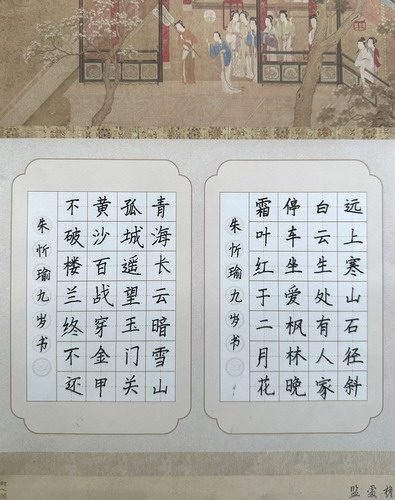 远上寒山石径斜
白云生处有人家
停车坐爱枫林晚
霜叶红于二月花
朱忻瑜九岁书
青海长云暗雪山
孤城遥望玉门关
黄沙百战穿金甲
不破楼兰终不还
朱忻瑜九岁书